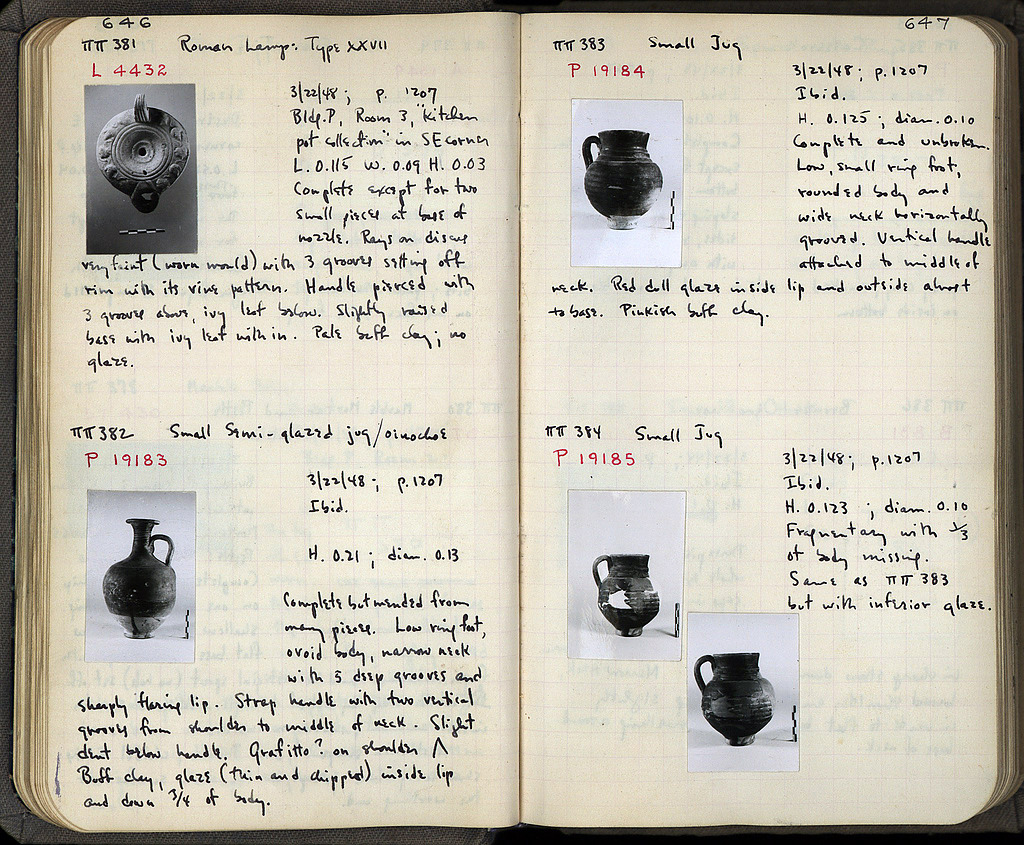 646
ΠΠ 381 Roman Lamp: Type XXVII
L 4432
3/22/48; p. 1207
Bldg. P, Room 3, "Kitchen
pot collection" in SE corner
L. 0.115 W. 0.09 H. 0.03
Complete except for two
small pieces at base of
nozzle. Rays on discus
very faint (worn mould) with 3 grooves setting off
rim with its vine pattern. Handle pierced, with
3 grooves above, ivy leaf below. Slightly raised
base with ivy leaf within. Pale buff clay; no
glaze.
ΠΠ 382 Small Semi-glazed jug/oinochoe
P 19183
3/22/48; p. 1207
Ibid.
H. 0.21; diam. 0.13
Complete but mended from
many pieces. Low ring foot,
ovoid body, narrow neck
with 3 deep grooves and
sharply flaring lip. Strap handle with two vertical
grooves from shoulder to middle of neck. Slight
dent below handle. Grafitto? on shoulder Λ
Buff clay, glaze (thin and chipped) inside lip
and down 3/4 of body.
647
ΠΠ 383 Small Jug
P 19184
3/22/48; p. 1207
Ibid.
H. 0.125; diam. 0.10
Complete and unbroken.
Low, small ring foot,
rounded body and
wide neck horizontally
grooved. Vertical handle
attached to middle of
neck. Red dull glaze inside lip and outside almost
to base. Pinkish buff clay.
ΠΠ 384 Small Jug
P 19185
3/22/48; p. 1207
Ibid.
H. 0.123; diam. 0.10
Fragmentary with 1/3
of body missing.
Same as ΠΠ 383
but with inferior glaze.